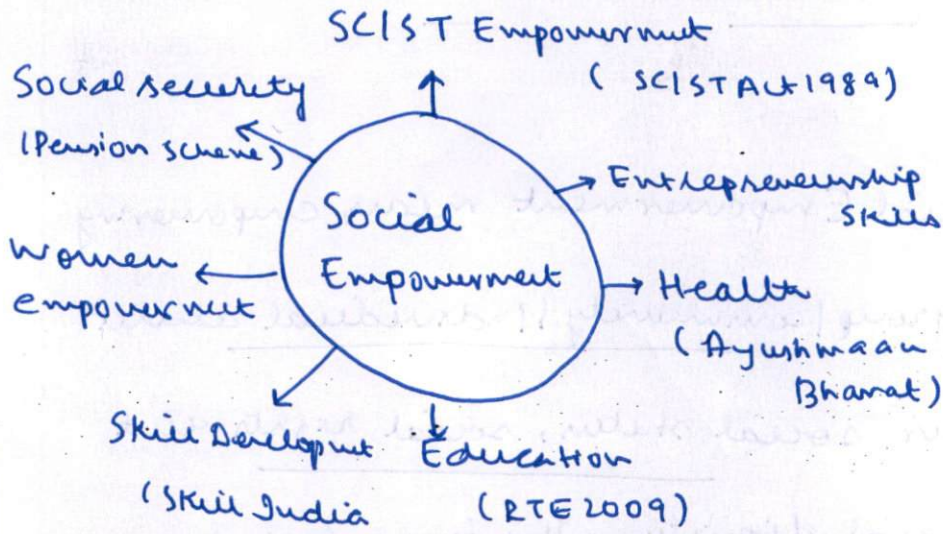 SC/ST Empowerment
(SC/ST Act 1989)
Social security
(Pension scheme)
Entrepreneurship
Skills
Social
Empowerment
Women
empowerment
Health
(Ayushmaan
Bharat)
Skill Developmt
(Skill India
Education
(RTE 2009)